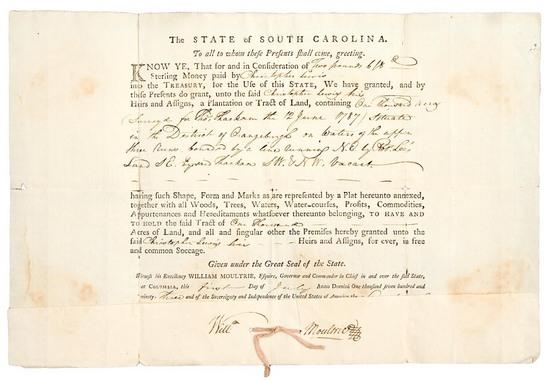 The STATE of SOUTH CAROLINA.
To all to whom these Presents shall come, greeting.
KNOW YE, That for and in Consideration of Two pounds 6/8
Sterling Money paid by Christopher Lewis
into the TREASURY, for the Use of this STATE, We have granted, and by
these Presents do grant, unto the said Christopher Lewis his
Heirs and Assigns, a Plantation or Tract of Land, containing One Thousand
Surveyed for the 12 June 1787 Situate
in the District of Orangeburgh on Waters of the upper
three Runs bounded by a line running N.E. by
Land S.E. by S.W. & N.W. Vacant
having such Shape, Form and Marks as are represented by a Plat hereunto annexed,
together with all Woods, Trees, Waters, Water-courses, Profits, Commodities,
Appurtenances and Hereditaments whatsoever thereunto belonging, TO HAVE AND
TO HOLD the said Tract of One Thousand
Acres of Land, and all and singular other the Premises hereby granted unto the
said Christopher Lewis his Heirs and Assigns, for ever, in free
and common Soccage.
Given under the Great Seal of the State.
Witness his Excellency WILLIAM MOULTRIE, Esquire, Governor and Commander in Chief in and over the said State,
at COLUMBIA, this first Day of July Anno Domini One thousand seven hundred and
ninety three and of the Sovereignty and Independence of the United States of America the
Will^m Moultrie